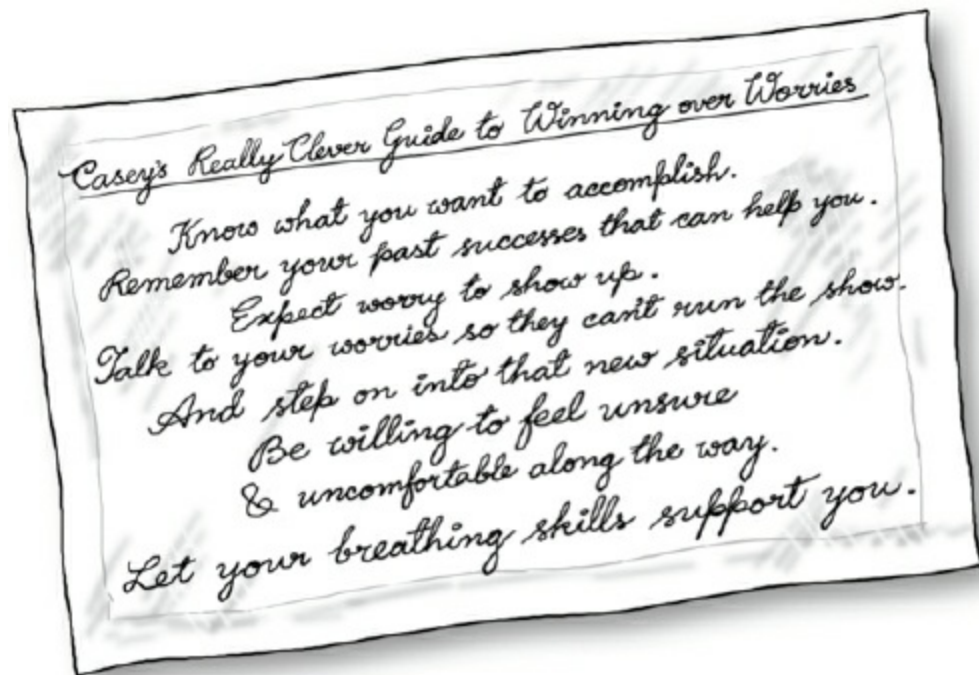 Casey's Really Clever Guide to Winning over Worries
Know what you want to accomplish.
Remember your past successes that can help you.
Expect worry to show up.
Talk to your worries so they can't run the show.
And step on into that new situation.
Be willing to feel unsure
& uncomfortable along the way.
Let your breathing skills support you.